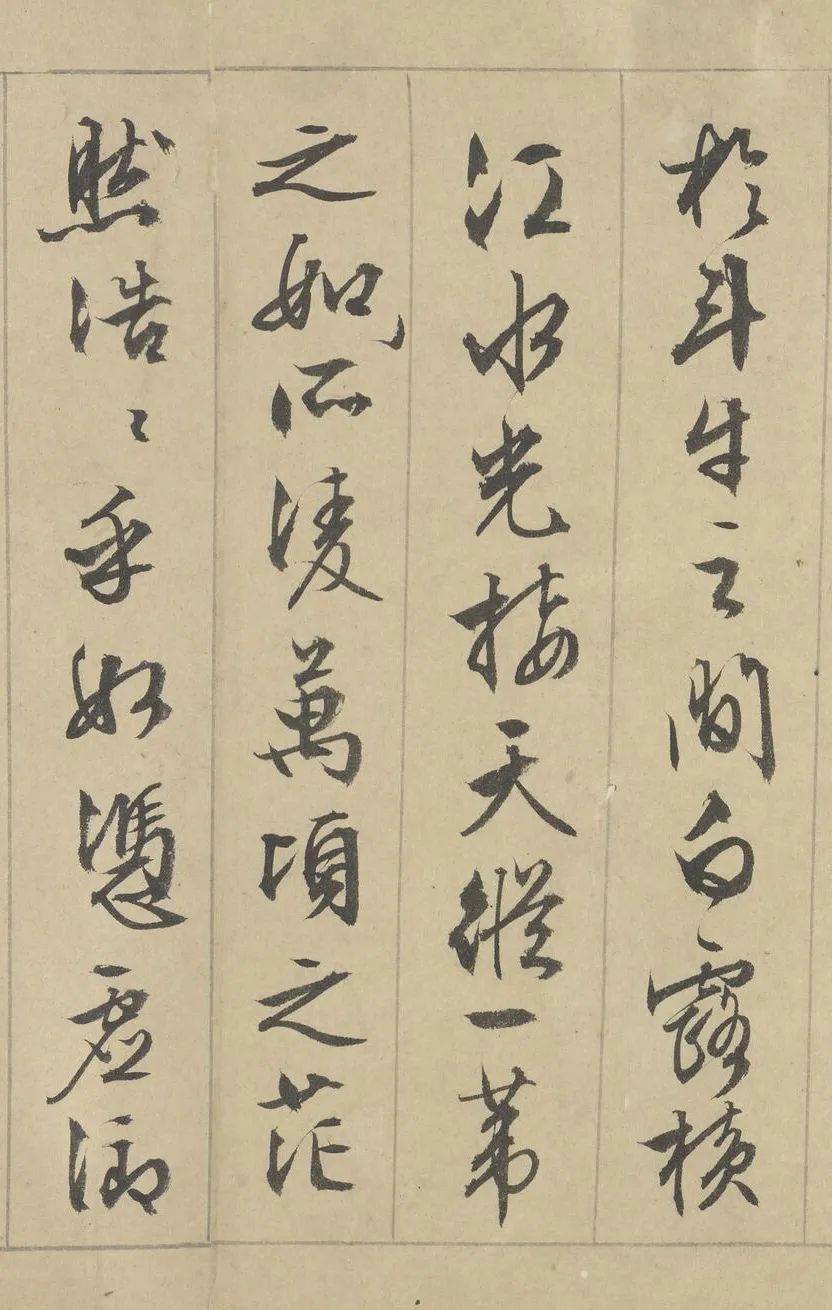 於斗牛之間白露橫
江水光接天縱一葦
之如所凌萬頃之茫
然浩〻乎如憑虛御